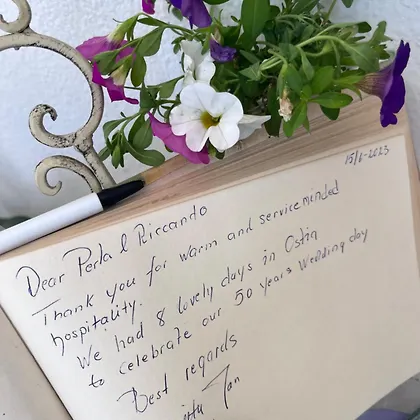 15/6-2023
Dear Perla & Riccando
Thank you for warm and servicemended
hospitality.
We had 8 lovely days in Ostia
to celebrate our 50 years Wedding day
Best regards
Jan